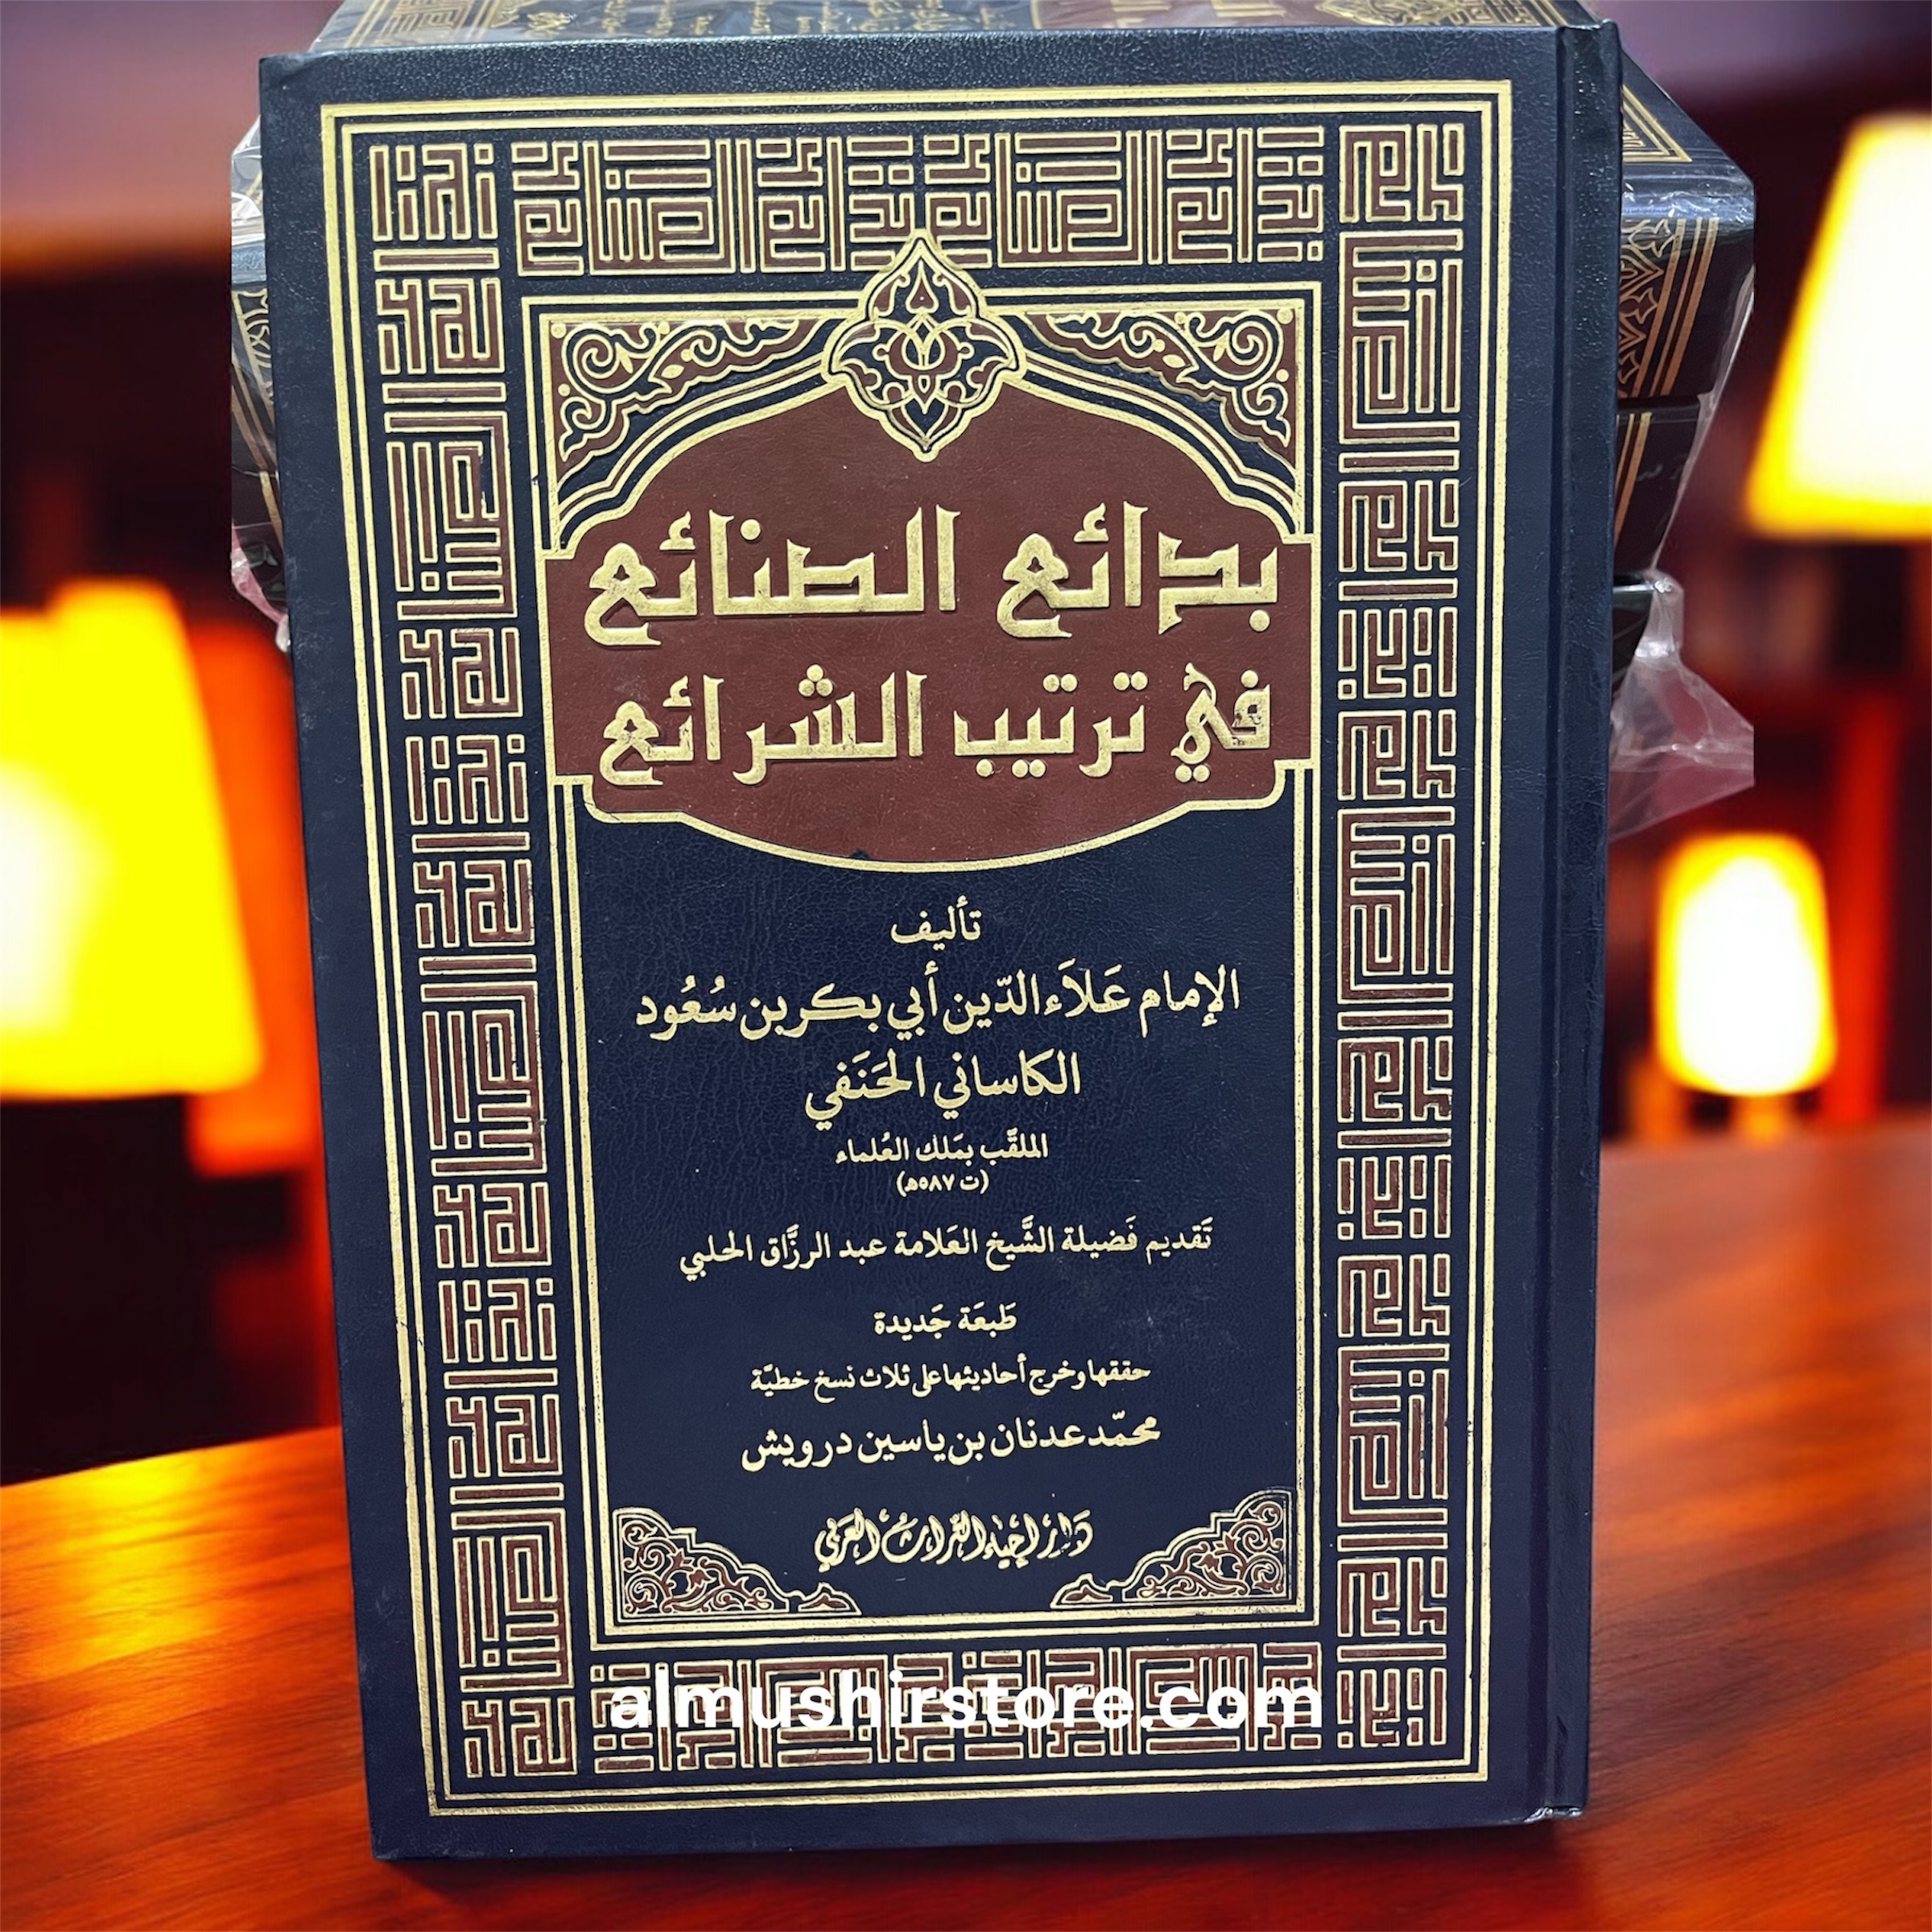 بدائع الصنائع
في ترتيب الشرائع
تأليف
الإمام عَلاَء الدّين أبي بكر بن سُعُود
الكاساني الحَنَفي
الملقَّب بمَلك العُلماء
(ت ٥٨٧هـ)
تَقديم فَضيلة الشَّيخ العَلامة عبد الرزَّاق الحلبي
طَبعَة جَديدة
حققها وخرج أحاديثها على ثلاث نسخ خطيّة
محمّد عدنان بن ياسين درويش
دَار إحياء التراث العربي
almushirstore.com